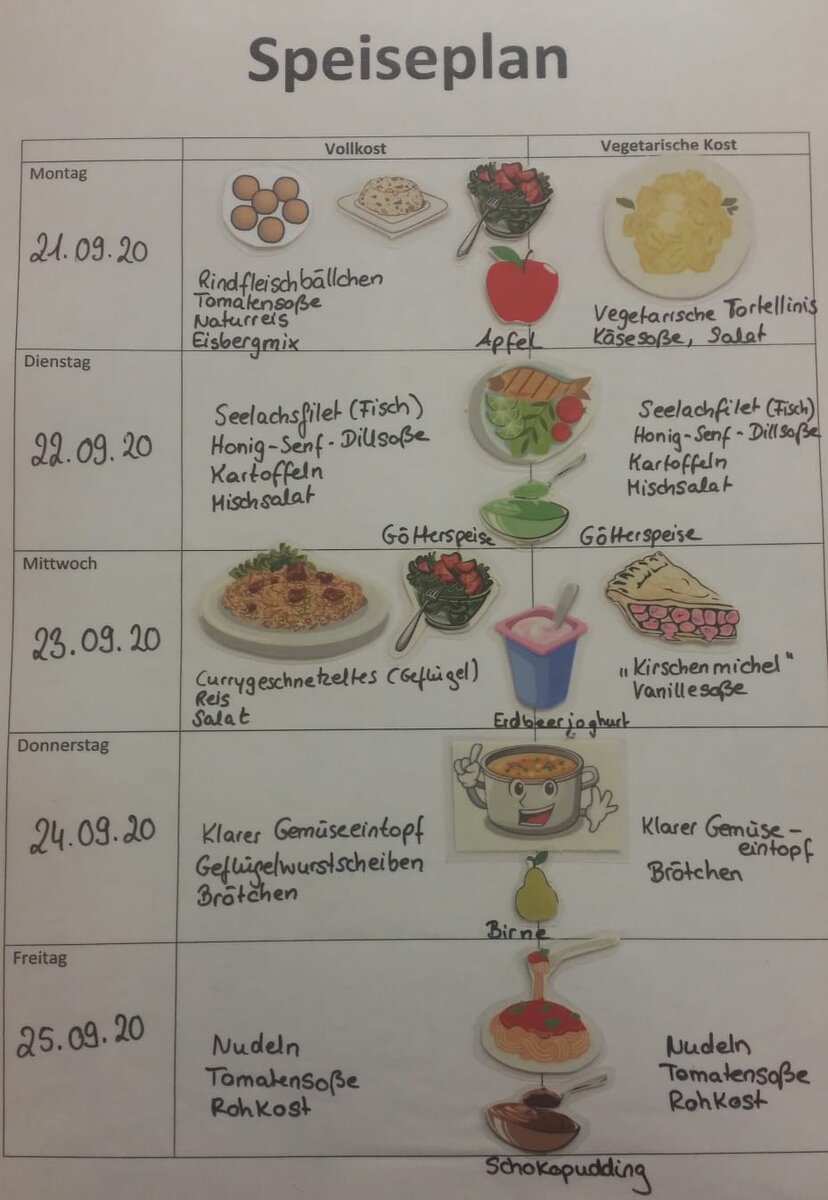 Speiseplan
Vollkost
Vegetarische Kost
Montag
21.09.20
Rindfleischbällchen
Tomatensoße
Naturreis
Eisbergmix
Apfel
Vegetarische Tortellinis
Käsesoße, Salat
Dienstag
22.09.20
Seelachsfilet (Fisch)
Honig-Senf-Dillsoße
Kartoffeln
Mischsalat
Götterspeise
Seelachfilet (Fisch)
Honig-Senf-Dillsoße
Kartoffeln
Mischsalat
Götterspeise
Mittwoch
23.09.20
Currygeschnetzeltes (Geflügel)
Reis
Salat
Erdbeerjoghurt
„Kirschenmichel"
Vanillesoße
Donnerstag
24.09.20
Klarer Gemüseeintopf
Geflügelwurstscheiben
Brötchen
Birne
Klarer Gemüse-
eintopf
Brötchen
Freitag
25.09.20
Nudeln
Tomatensoße
Rohkost
Schokopudding
Nudeln
Tomatensoße
Rohkost